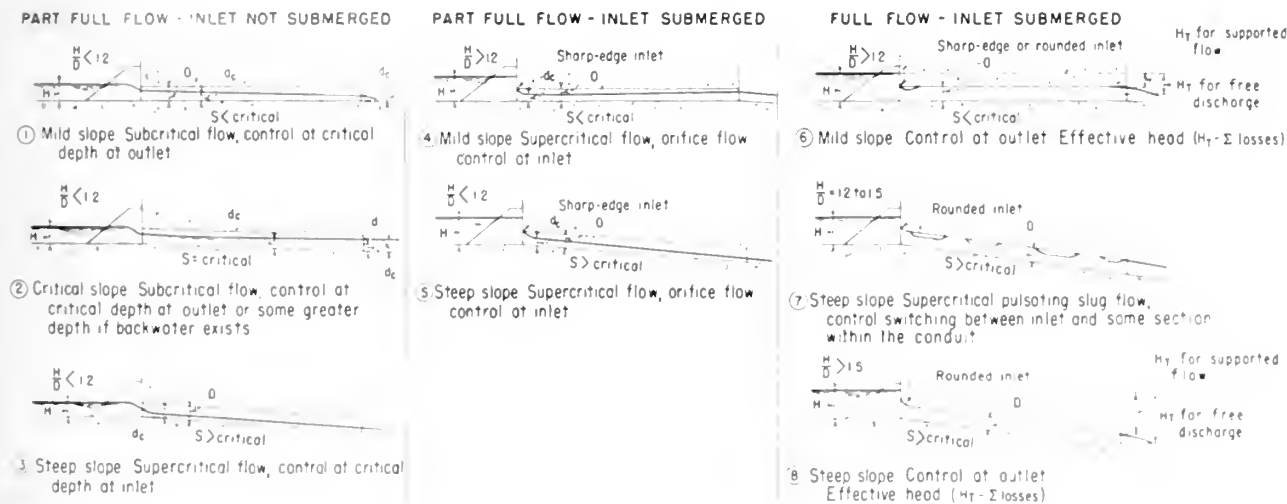 PART FULL FLOW - INLET NOT SUBMERGED
H/D < 1.2
H
D
dc
dc
S < critical
① Mild slope Subcritical flow, control at critical
depth at outlet
H/D < 1.2
H
dc
d
dc
S = critical
② Critical slope Subcritical flow, control at
critical depth at outlet or some greater
depth if backwater exists
H/D < 1.2
H
D
dc
S > critical
3 Steep slope Supercritical flow, control at critical
depth at inlet
PART FULL FLOW - INLET SUBMERGED
H/D > 1.2
Sharp-edge inlet
H
dc
D
S < critical
④ Mild slope Supercritical flow, orifice flow
control at inlet
H/D < 1.2
Sharp-edge inlet
H
dc
D
S > critical
⑤ Steep slope Supercritical flow, orifice flow
control at inlet
FULL FLOW - INLET SUBMERGED
H/D > 1.2
Sharp-edge or rounded inlet
HT for supported
flow
D
H
HT for free
discharge
S < critical
⑥ Mild slope Control at outlet Effective head (HT - Σ losses)
H/D = 1.2 to 1.5
Rounded inlet
D
H
S > critical
⑦ Steep slope Supercritical pulsating slug flow,
control switching between inlet and some section
within the conduit
H/D > 1.5
Rounded inlet
HT for supported
flow
H
D
HT for free
discharge
S > critical
8 Steep slope Control at outlet
Effective head (HT - Σ losses)